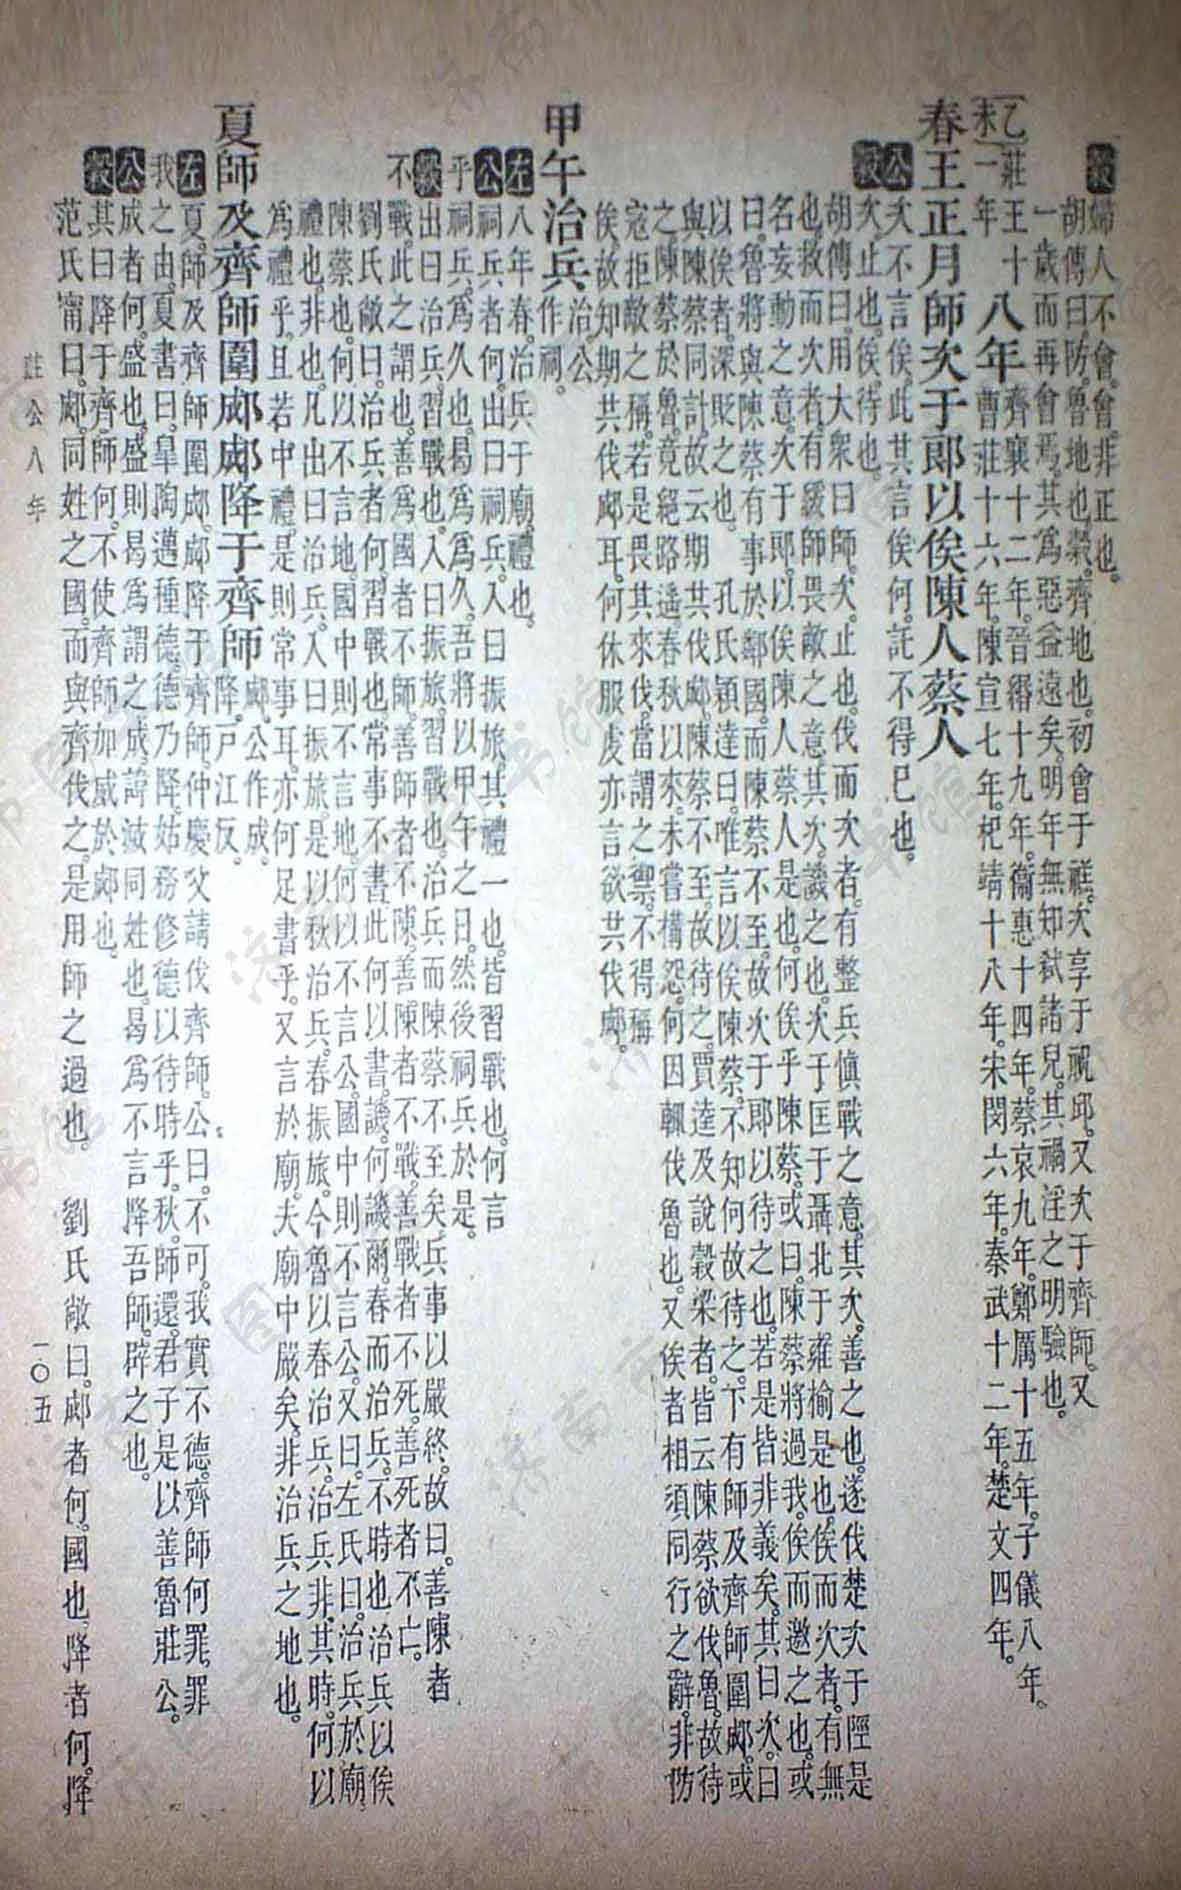 穀 婦人不會。會。非正也。
胡傳曰。防。魯地也。穀。齊地也。初會于禚。次享于祝邱。又次于齊師。又
一歲而再會焉。其爲惡益遠矣。明年無知弒諸兒。其禍淫之明驗也。
乙未 莊王十一年 八年 齊襄十二年。晉緡十九年。衞惠十四年。蔡哀九年。鄭厲十五年。子儀八年。
曹莊十六年。陳宣七年。杞靖十八年。宋閔六年。秦武十二年。楚文四年。
春王正月師次于郎以俟陳人蔡人
公 次不言俟。此其言俟何。託不得已也。
穀 次。止也。俟。待也。
胡傳曰。用大衆曰師。次。止也。伐而次者。有整兵愼戰之意。其次。善之也。遂伐楚次于陘是
也。救而次者。有緩師畏敵之意。其次。譏之也。次于匡于聶北于雍榆是也。俟而次者。有無
名妄動之意。次于郎。以俟陳人蔡人是也。何俟乎陳蔡。或曰。陳蔡將過我。俟而邀之也。或
曰。魯將與陳蔡有事於鄰國。而陳蔡不至。故次于郎以待之也。若是皆非義矣。其曰次。曰
以俟者。深貶之也。　孔氏穎達曰。唯言以俟陳蔡。不知何故待之。下有師及齊師圍郕。或
與陳蔡同計。故云期共伐郕。陳蔡不至。故待之。賈逵及說穀梁者。皆云陳蔡欲伐魯。故待
之。陳蔡於魯。竟絕路遙。春秋以來。未嘗構怨。何因輒伐魯也。又俟者相須同行之辭。非防
寇拒敵之稱。若是畏其來伐。當謂之禦。不得稱
俟。故知期共伐郕耳。何休服虔亦言欲共伐郕。
甲午治兵 治公作祠。
左 八年春。治兵于廟。禮也。
公 祠兵者何。出曰祠兵。入曰振旅。其禮一也。皆習戰也。何言
乎祠兵。爲久也。曷爲爲久。吾將以甲午之日。然後祠兵於是。
穀 出曰治兵。習戰也。入曰振旅。習戰也。治兵而陳蔡不至矣。兵事以嚴終。故曰。善陳者
不戰。此之謂也。善爲國者不師。善師者不陳。善陳者不戰。善戰者不死。善死者不亡。
劉氏敞曰。治兵者何。習戰也。常事不書。此何以書。譏。何譏爾。春而治兵。不時也。治兵以俟
陳蔡也。何以不言地。國中則不言地。何以不言公。國中則不言公。又曰。左氏曰。治兵於廟
禮也。非也。凡出曰治兵。入曰振旅。是以秋治兵。春振旅。今魯以春治兵。治兵非其時。何以
爲禮乎。且若中禮。是則常事耳。亦何足書乎。又言於廟。夫廟中嚴矣。非治兵之地也。
夏師及齊師圍郕郕降于齊師 郕。公作成。降。戶江反。
左 夏。師及齊師圍郕。郕降于齊師。仲慶父請伐齊師。公曰。不可。我實不德。齊師何罪。罪
我之由。夏書曰。皐陶邁種德。德乃降。姑務修德以待時乎。秋。師還。君子是以善魯莊公。
公 成者何。盛也。盛則曷爲謂之成。諱滅同姓也。曷爲不言降吾師。辟之也。
穀 其曰降于齊師何。不使齊師加威於郕也。
范氏甯曰。郕。同姓之國。而與齊伐之。是用師之過也。　劉氏敞曰。郕者何。國也。降者何。降
莊公八年
一〇五